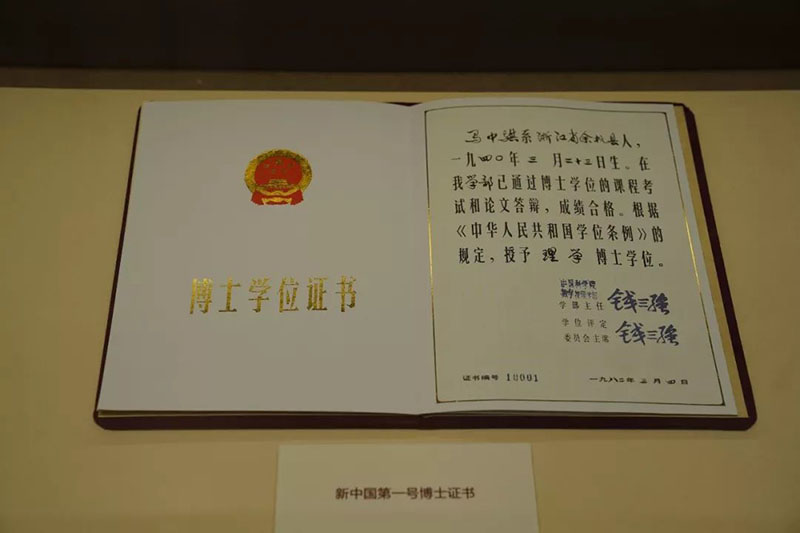 博士学位证书
马中骐系浙江省余杭县人，
一九四〇年三月二十三日生。在
我学部已通过博士学位的课程考
试和论文答辩，成绩合格。根据
《中华人民共和国学位条例》的
规定，授予理学博士学位。
中国科学院
数学物理学部
学部主任 钱三强
学位评定
委员会主席 钱三强
证书编号 10001
一九八二年三月四日
新中国第一号博士证书